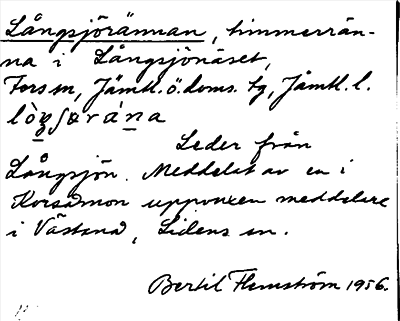 Långsjörännan, timmerrän-
na i Långsjönäset,
Fors sn, Jämtl. ö. doms. tg, Jämtl. l.
Leder från
Långsjön. Meddelat av en i
Korsåmon uppvuxen meddelare
i Västanå, Lidens sn.
Bertil Flemström 1956.